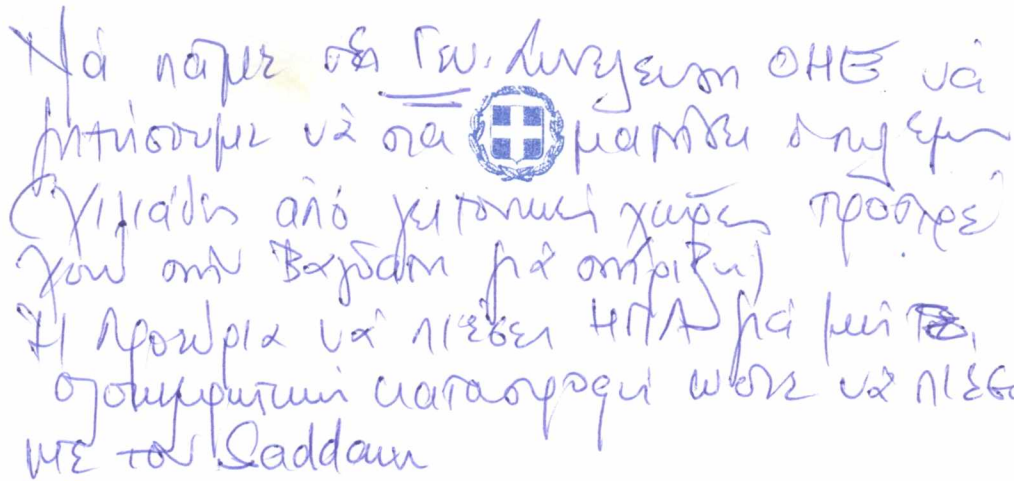 Νά πάμε στη Γεν. Συνέλευση ΟΗΕ νά
ζητήσουμε νά σταματήσει ο πόλεμ
(χιλιάδες από γειτονικές χώρες προστρέ
χουν στην Βαγδάτη γιά στήριξη)
Η Προεδρία νά πιέσει ΗΠΑ γιά μή
ολοκληρωτική καταστροφή ώστε νά πιέσο
με τον Saddam